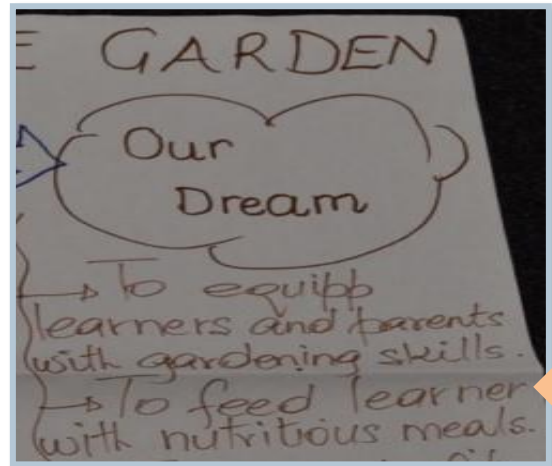 E GARDEN
Our
Dream
→ To equipp
learners and parents
with gardening skills.
→ To feed learner
with nutritious meals.